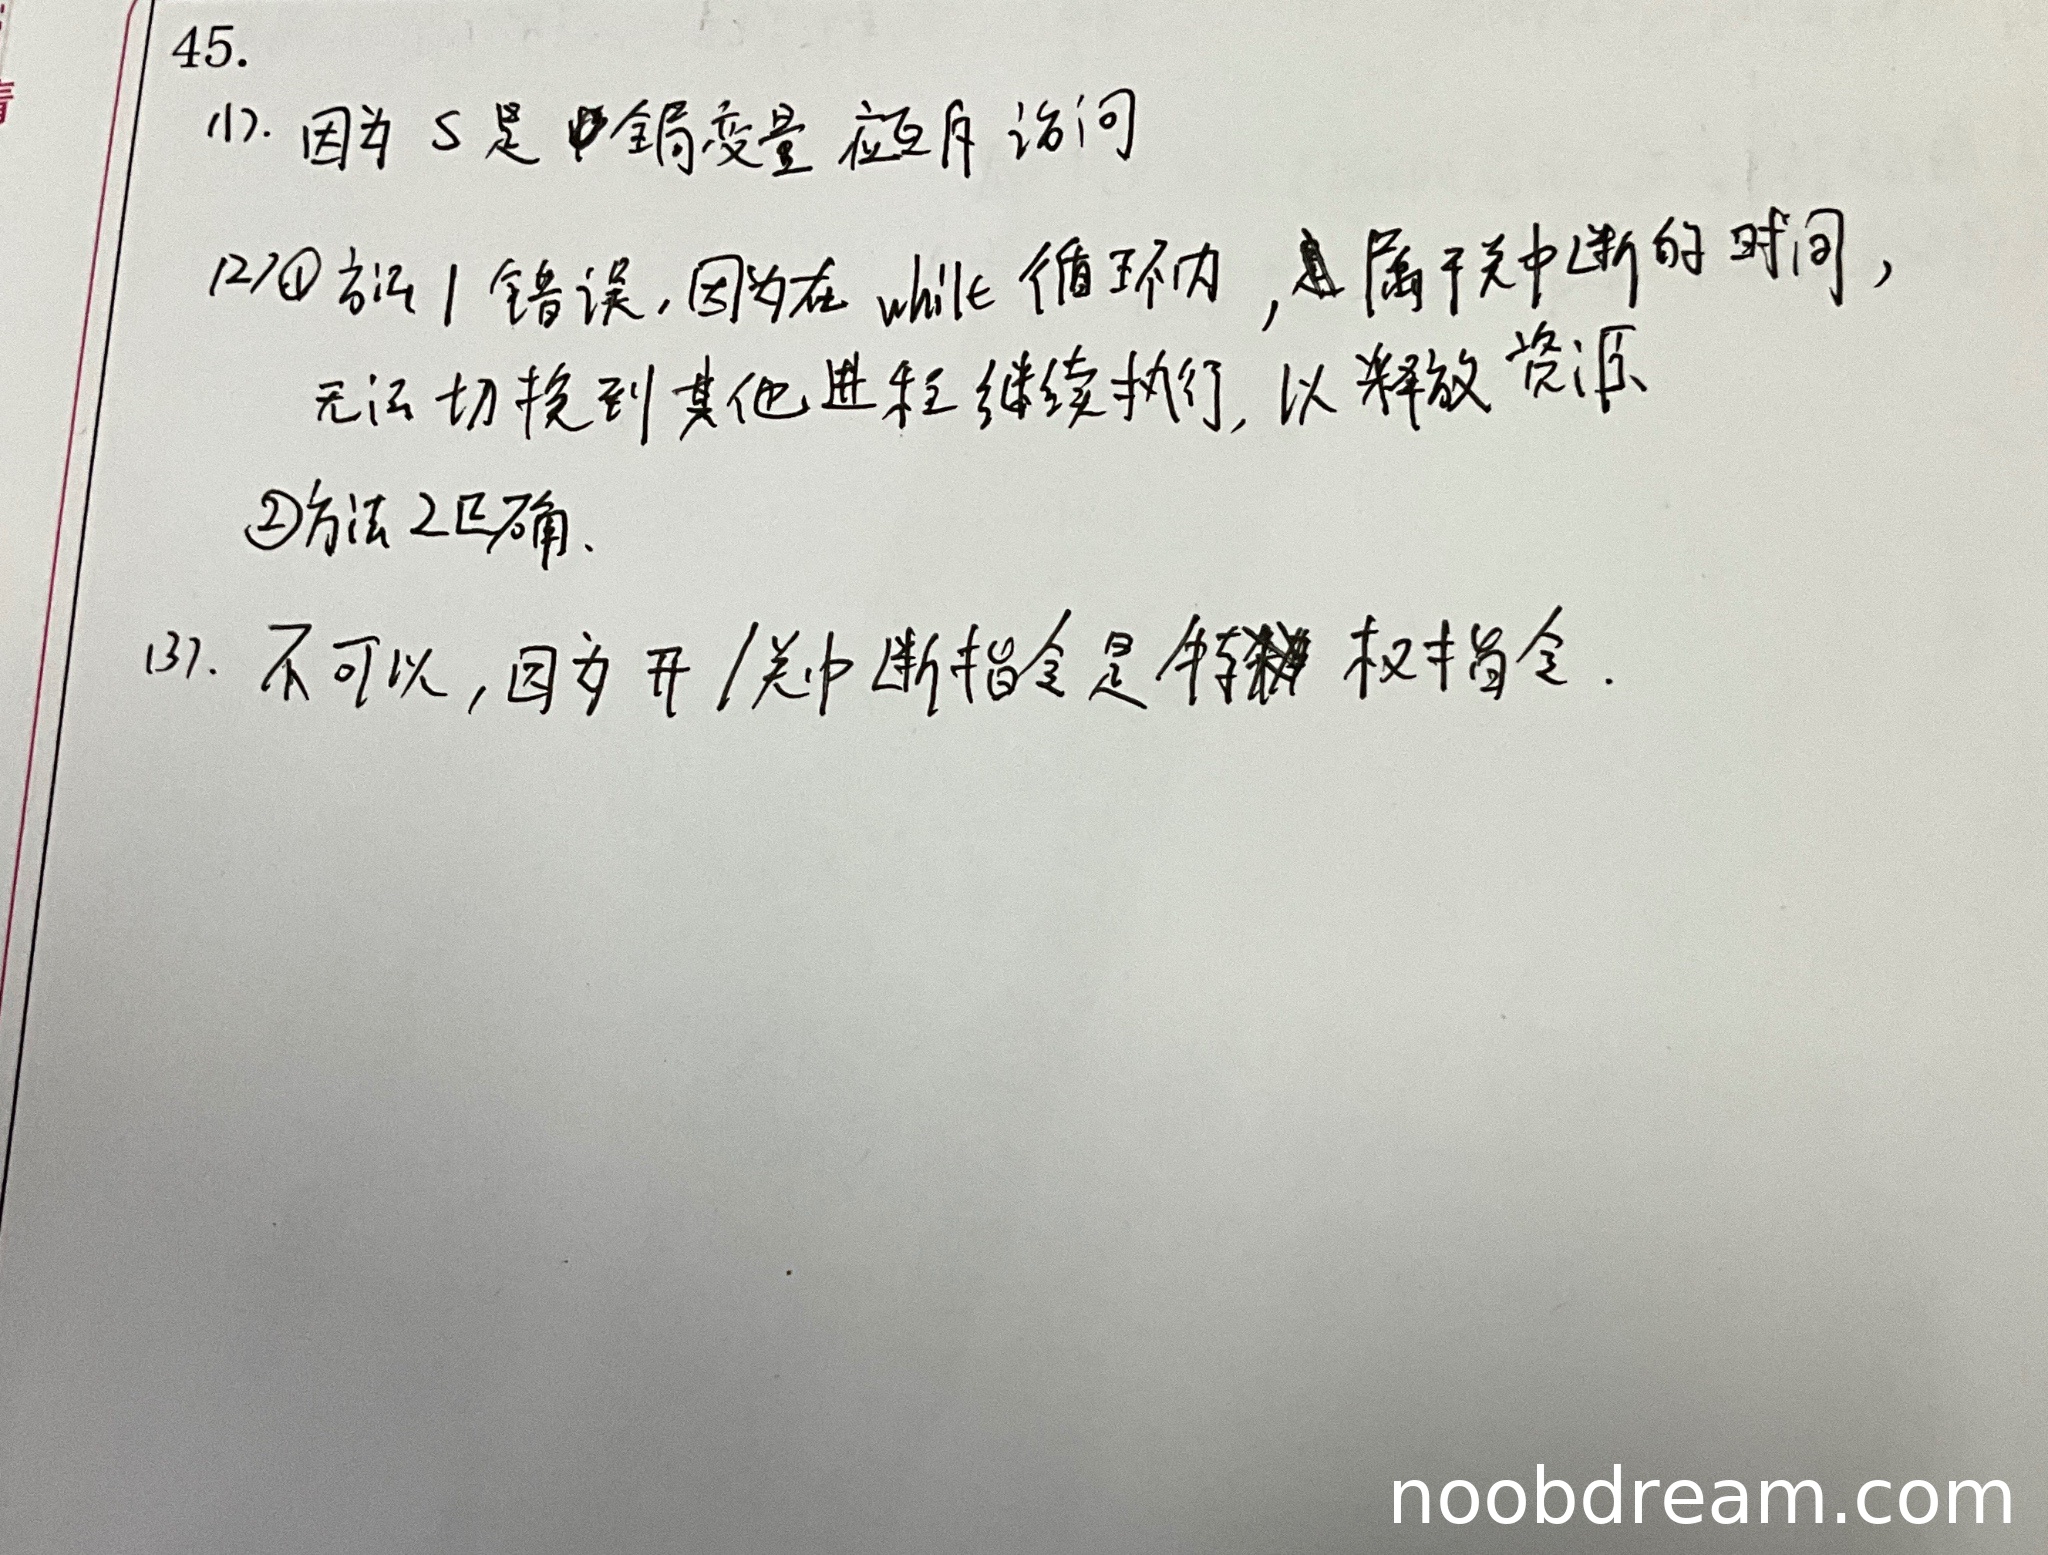 45.
(1). 因为 S 是 全局变量 应互斥 访问
(2) ① 方法 1 错误, 因为在 while 循环内, 属于关中断的时间,
无法切换到其他进程继续执行, 以释放资源
② 方法 2 正确.
(3). 不可以, 因为开/关中断指令是特权指令.
noobdream.com